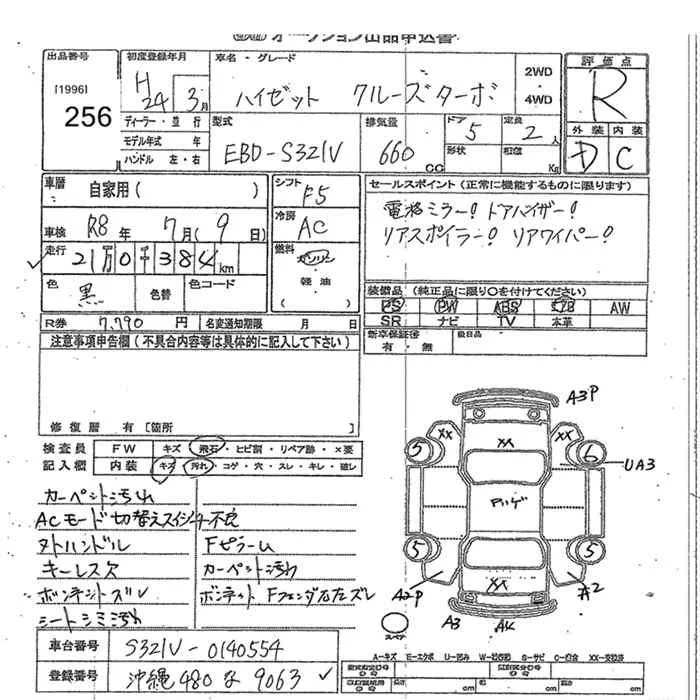 オークション出品申込書
出品番号
[1996]
256
初度登録年月
H 24 3月
車名・グレード
ハイゼット クルーズターボ
2WD
4WD
評価点
R
ディーラー・並行
モデル年式 年
ハンドル 左・右
型式
EBD-S321V
排気量
660 cc
ドア
5
形状
定員
2人
積載
Kg
外装 内装
D C
車歴
自家用( )
車検 R8年 7月(9日)
走行
21万0千384km
色
黒
色替
色コード
シフト
F5
冷房
AC
燃料
ガソリン
軽油
セールスポイント(正常に機能するものに限ります)
電格ミラー! ドアバイザー!
リアスポイラー! リアワイパー!
装備品(純正品に限り○を付けてください)
PS PW ABS SRS AW
SR ナビ TV 本革
R券 7,790円 名変通知期限 月 日
新車保証書
有・無
後日品
注意事項申告欄(不具合内容等は具体的に記入して下さい)
修復歴 有[箇所 ]
検査員
記入欄
FW キズ・飛石・ヒビ割・リペア跡・X要
内装 キズ・汚れ・コゲ・穴・スレ・キレ・破レ
カーペット汚れ
ACモード切替えスイッチ不良
ヌトハンドル
キーレス欠
ボンネットズレ
シートシミ汚れ
Fピラーム
カーペット汚れ
ボンネット Fフェンダ右左ズレ
A3P
XX XX
XX
5 6
UA3
5 5
XX
A2P A2
A3 A4
スペア
A-キズ E-エクボ U-凹み W-補修跡 S-サビ C-腐食 XX-交換済
車台番号
S321V-0140554
登録番号
沖縄 480 な 9063
長さ
cm cm cm